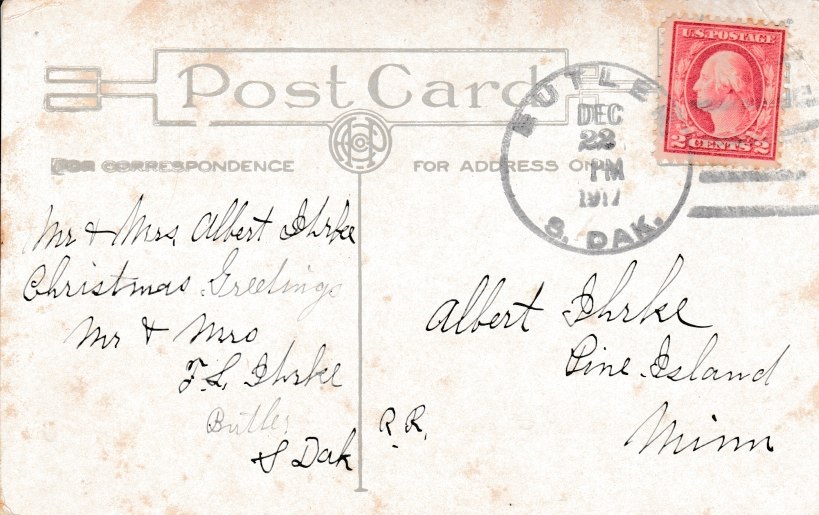 Post Card
FOR CORRESPONDENCE
FOR ADDRESS ON
BUTLE
DEC
22
PM
1917
S. DAK.
U.S. POSTAGE
2 CENTS 2
Mr & Mrs Albert Ihrke
Christmas Greetings
Mr & Mrs
F. L. Ihrke
Butler
S Dak
Albert Ihrke
Pine Island
Minn
R. R.